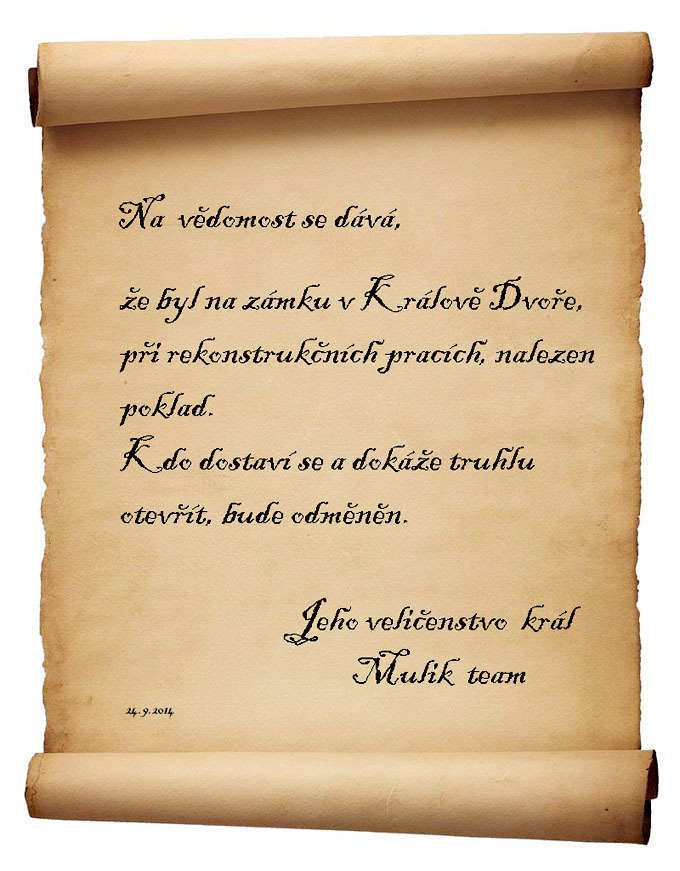 Na vědomost se dává,
že byl na zámku v Králově Dvoře,
při rekonstrukčních pracích, nalezen
poklad.
Kdo dostaví se a dokáže truhlu
otevřít, bude odměněn.
Jeho veličenstvo král
Mulik team
24.9.2014